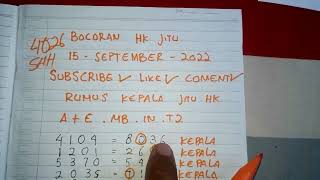 4026
SAH
BOCORAN HK JITU
15 - SEPTEMBER - 2022
SUBSCRIBE✓ LIKE✓ COMENT✓
RUMUS KEPALA JITU HK
A + E . MB . IN . T2
4 1 0 9 = 8 0 3 6 KEPALA
1 2 0 1 = 2 6 KEPALA
5 3 7 0 = 5 KEPALA
2 0 3 5 = KEPALA